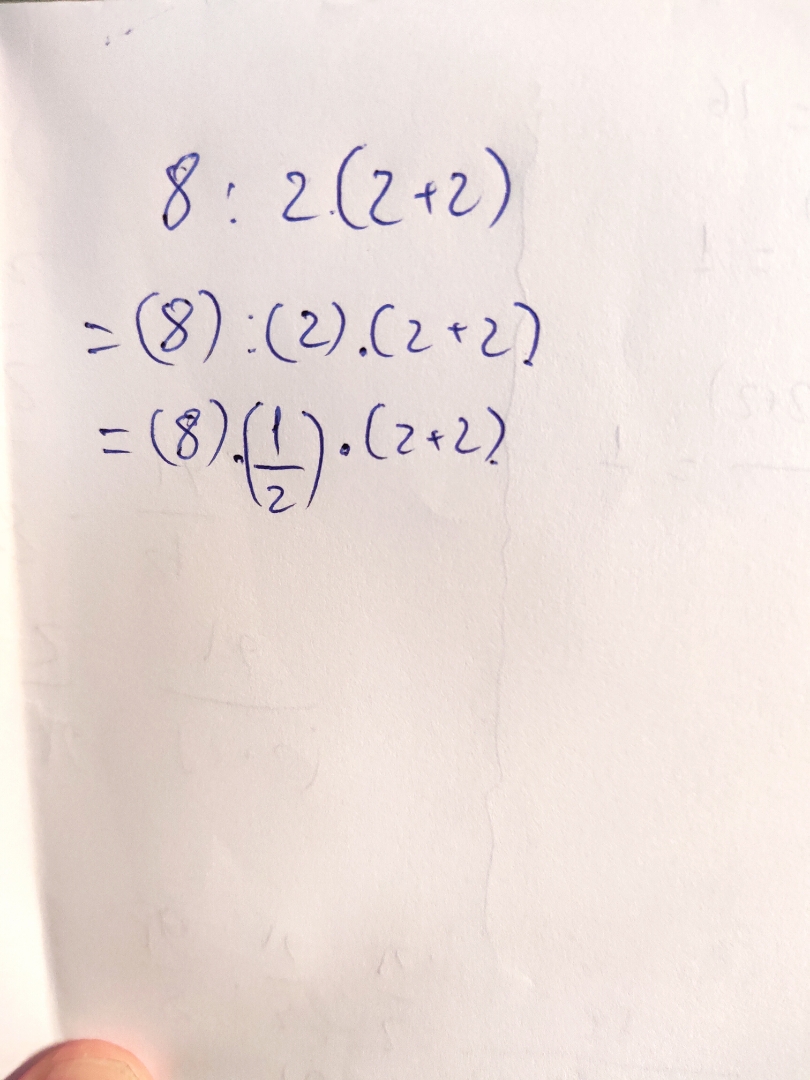 8 : 2.(2+2)
= (8) : (2).(2+2)
= (8).(1/2).(2+2)